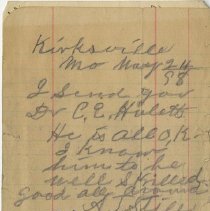 Kirksville
Mo May 24
98
I send you
Dr C, E, Hulett
He is all O, K.
I know
him to be
well skilled
good all around
A. Still